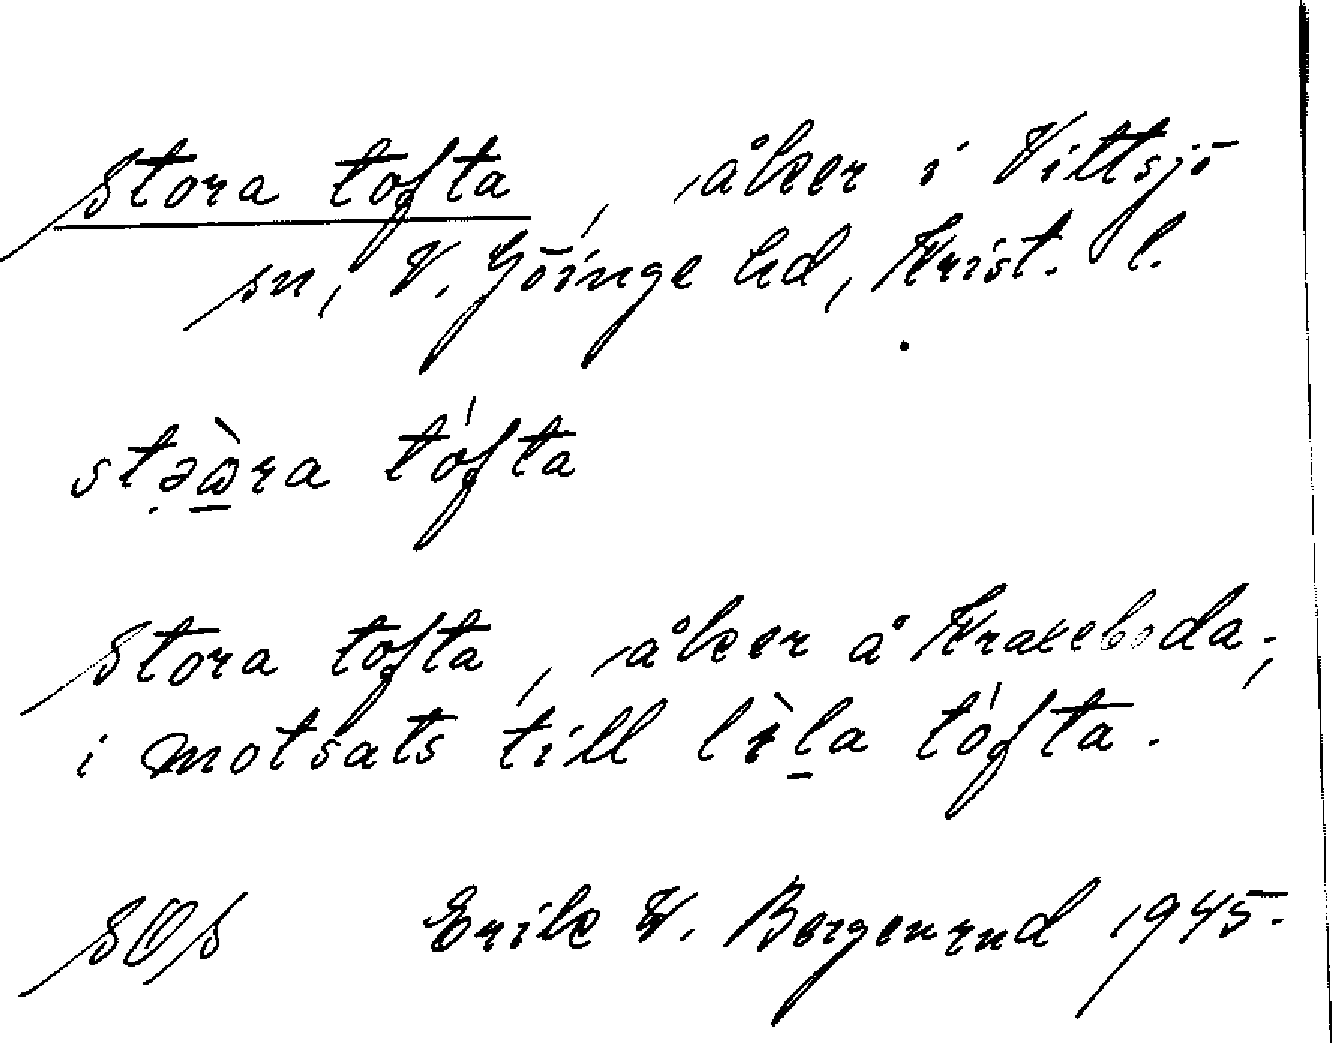 Stora tofta, åker i Vittsjö
sn, V. Göinge hd, Krist. l.
stə̣ὼ̱ra tófta
Stora tofta, åker å Krakeboda;
i motsats till lìḻa tófta.
SOS Erik W. Bergenrud 1945.